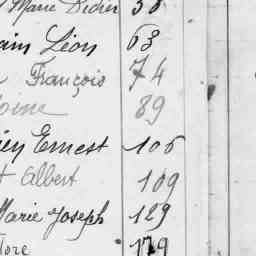 Marie Didier 56
ain Léon 63
François 74
oine 89
ien Ernest 106
t Albert 109
Marie Joseph 129
tore 179